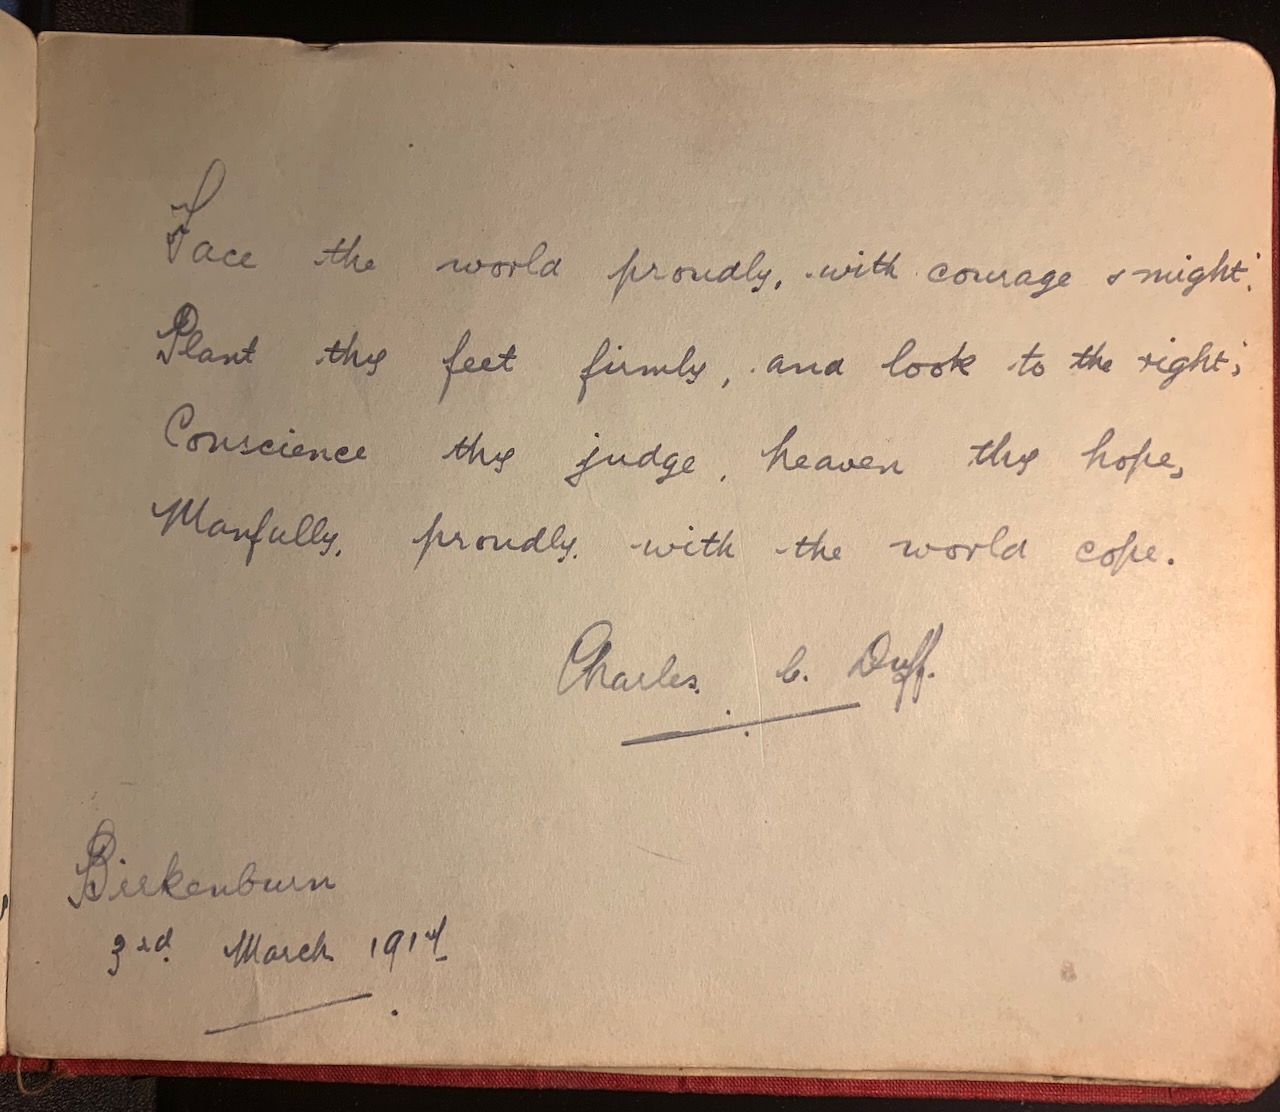 Face the world proudly, with courage & might;
Plant thy feet firmly, and look to the right;
Conscience thy judge, heaven thy hope,
Manfully, proudly, with the world cope.
Charles. C. Duff.
Birkenburn
3rd. March 1914.